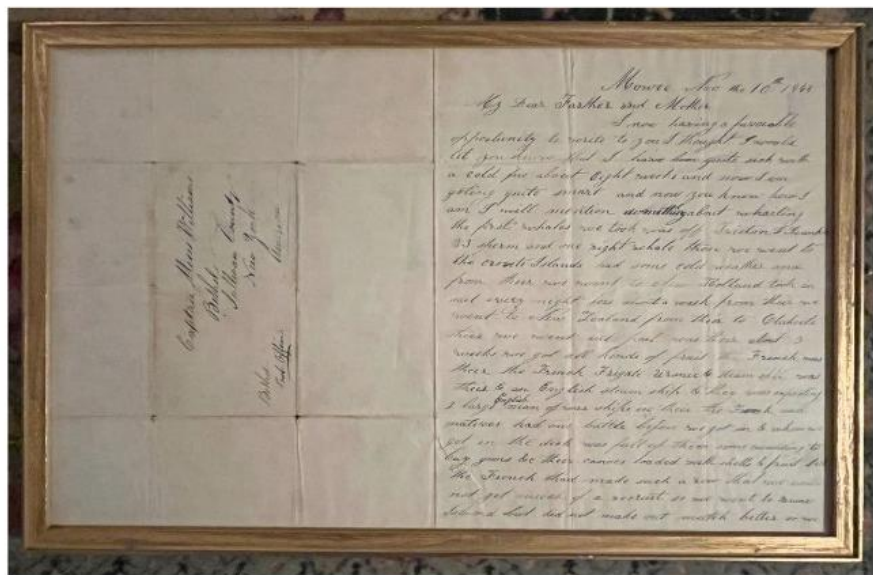 Captain Williams
Bethel
Sullivan County
New York
America
Bethel
Post Office
Mowee Nov the 10th
My Dear Farther and Mother
I now having a favorable
opportunity to write to you I thought I would
let you know that I have been quite sick with
a cold for about Eight weeks and now I am
geting quite smart and now you know how I
am I will mention something about
the first whales we took was off
33 sperm and one right whale then we went to
the Islands had some cold weather
from their we went to New Holland took in
not every night for about a week from their we
went to New Zealand from their to
their we went in port was their about 3
weeks we got all kinds of fruit the French was
their the French Frigate steam ship was
their to an English steam ship to they was expecting
3 large English man of war ships in their the French and
natives had one battle before we got in to when we
got in the deck was full of them some wanting to
their canoes loaded with shells & fruit
the French had made such a row that we could
not get much of a recruit so we went to
Island but did not make out much better so we